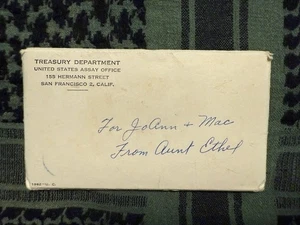 TREASURY DEPARTMENT
UNITED STATES ASSAY OFFICE
155 HERMANN STREET
SAN FRANCISCO 2, CALIF.
For JoAnn + Mac
From Aunt Ethel